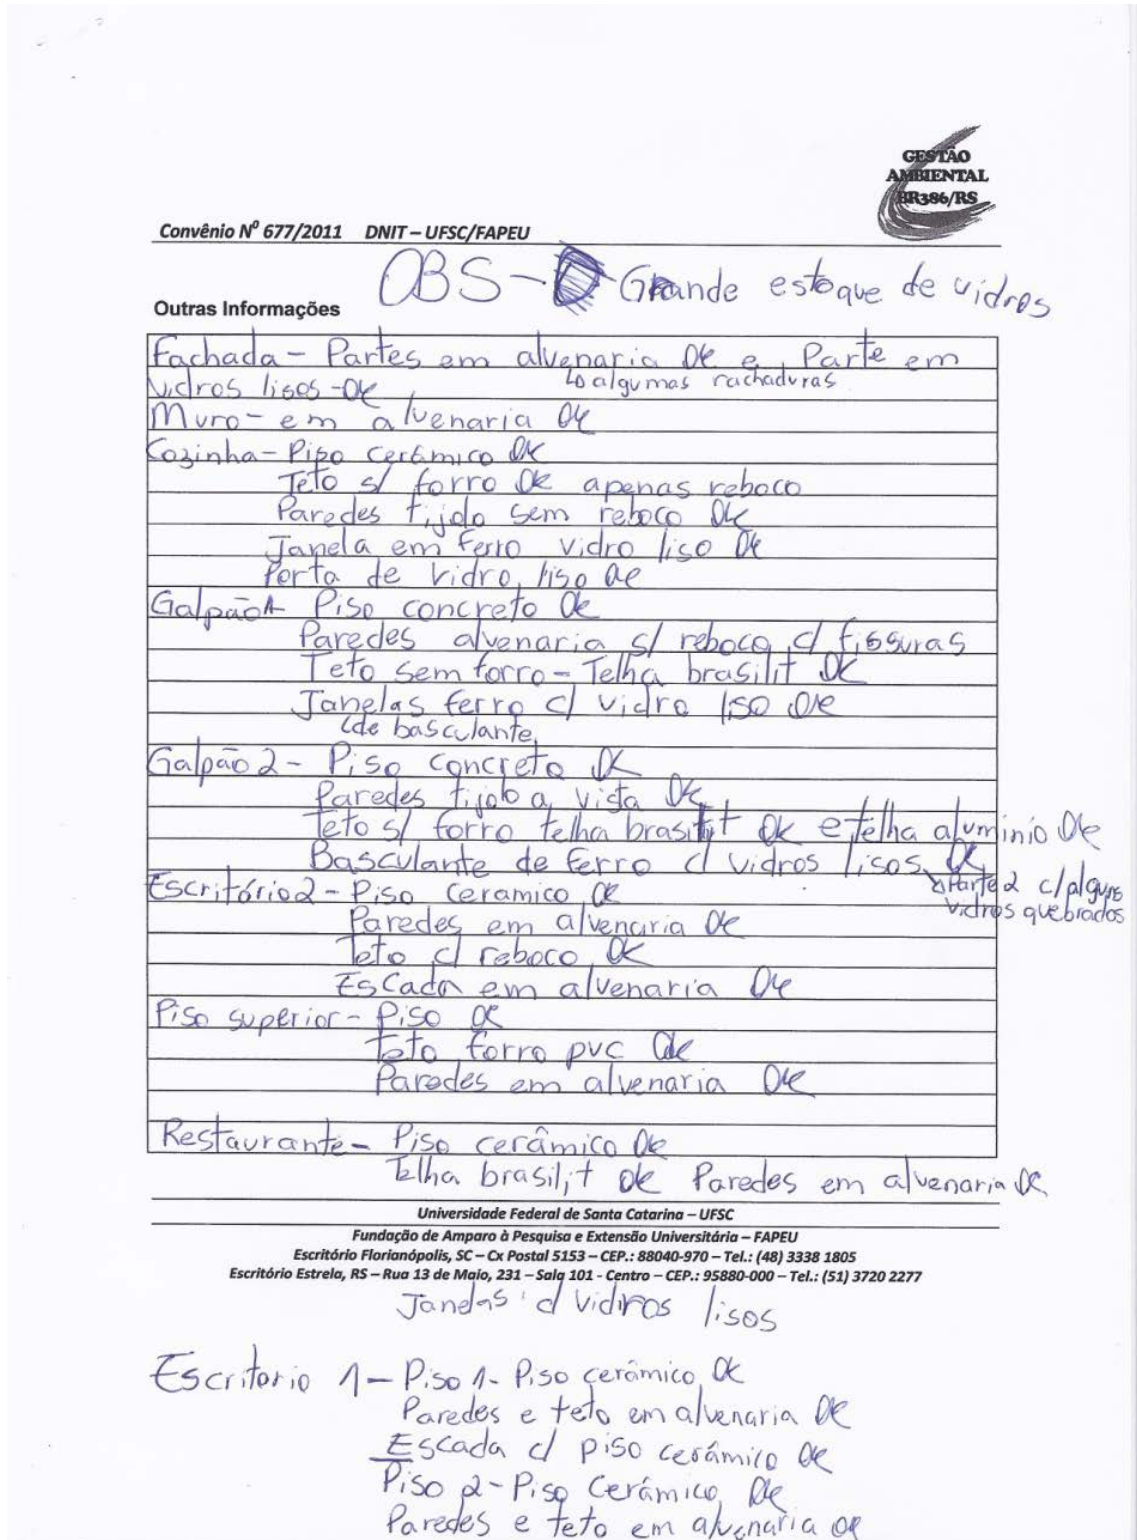 GESTÃO
AMBIENTAL
BR386/RS
Convênio Nº 677/2011 DNIT – UFSC/FAPEU
OBS - Grande estoque de vidros
Outras Informações
Fachada - Partes em alvenaria OK e Parte em
↳ algumas rachaduras
vidros lisos - OK
Muro - em alvenaria OK
Cozinha - Piso cerâmico OK
Teto s/ forro OK apenas reboco
Paredes tijolo sem reboco OK
Janela em ferro vidro liso OK
Porta de vidro liso OK
Galpão 1 - Piso concreto OK
Paredes alvenaria s/ reboco c/ fissuras
Teto sem forro - Telha brasilit OK
Janelas ferro c/ vidro liso OK
↳ de basculante
Galpão 2 - Piso concreto OK
Paredes tijolo a vista OK
Teto s/ forro telha brasilit OK e telha aluminio OK
Basculante de ferro c/ vidros lisos OK
↳ Parte 2 c/ alguns
vidros quebrados
Escritório 2 - Piso ceramico OK
Paredes em alvenaria OK
Teto c/ reboco OK
Escada em alvenaria OK
Piso superior - Piso OK
Teto forro pvc OK
Paredes em alvenaria OK
Restaurante - Piso cerâmico OK
Telha brasilit OK Paredes em alvenaria OK
Universidade Federal de Santa Catarina – UFSC
Fundação de Amparo à Pesquisa e Extensão Universitária – FAPEU
Escritório Florianópolis, SC – Cx Postal 5153 – CEP.: 88040-970 – Tel.: (48) 3338 1805
Escritório Estrela, RS – Rua 13 de Maio, 231 – Sala 101 - Centro – CEP.: 95880-000 – Tel.: (51) 3720 2277
Janelas c/ vidros lisos
Escritorio 1 - Piso 1 - Piso cerâmico OK
Paredes e teto em alvenaria OK
Escada c/ piso cerâmico OK
Piso 2 - Piso Cerâmico OK
Paredes e teto em alvenaria OK